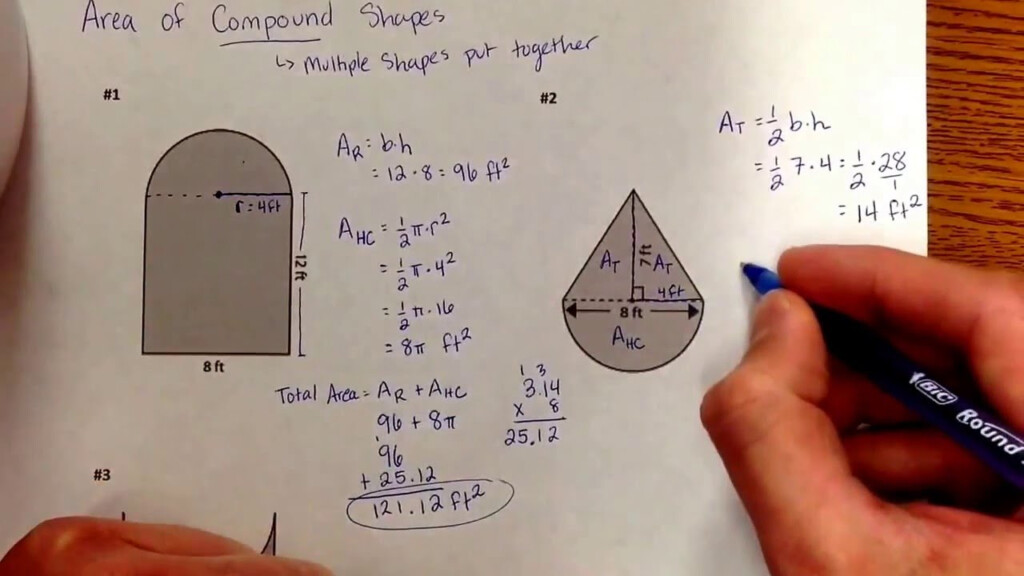 Area of Compound Shapes
↳ Multiple Shapes put together
#1
r = 4ft
12 ft
8 ft
A_R = b·h
= 12·8 = 96 ft²
A_HC = 1/2 π·r²
= 1/2 π·4²
= 1/2 π·16
= 8π ft²
Total Area = A_R + A_HC
96 + 8π
1
96
+ 25.12
121.12 ft²
1 3
3.14
x 8
25.12
#2
A_T
7 ft
A_T
4ft
8 ft
A_HC
A_T = 1/2 b·h
= 1/2 7·4 = 1/2 · 28/1
= 14 ft²
#3
BIC Round